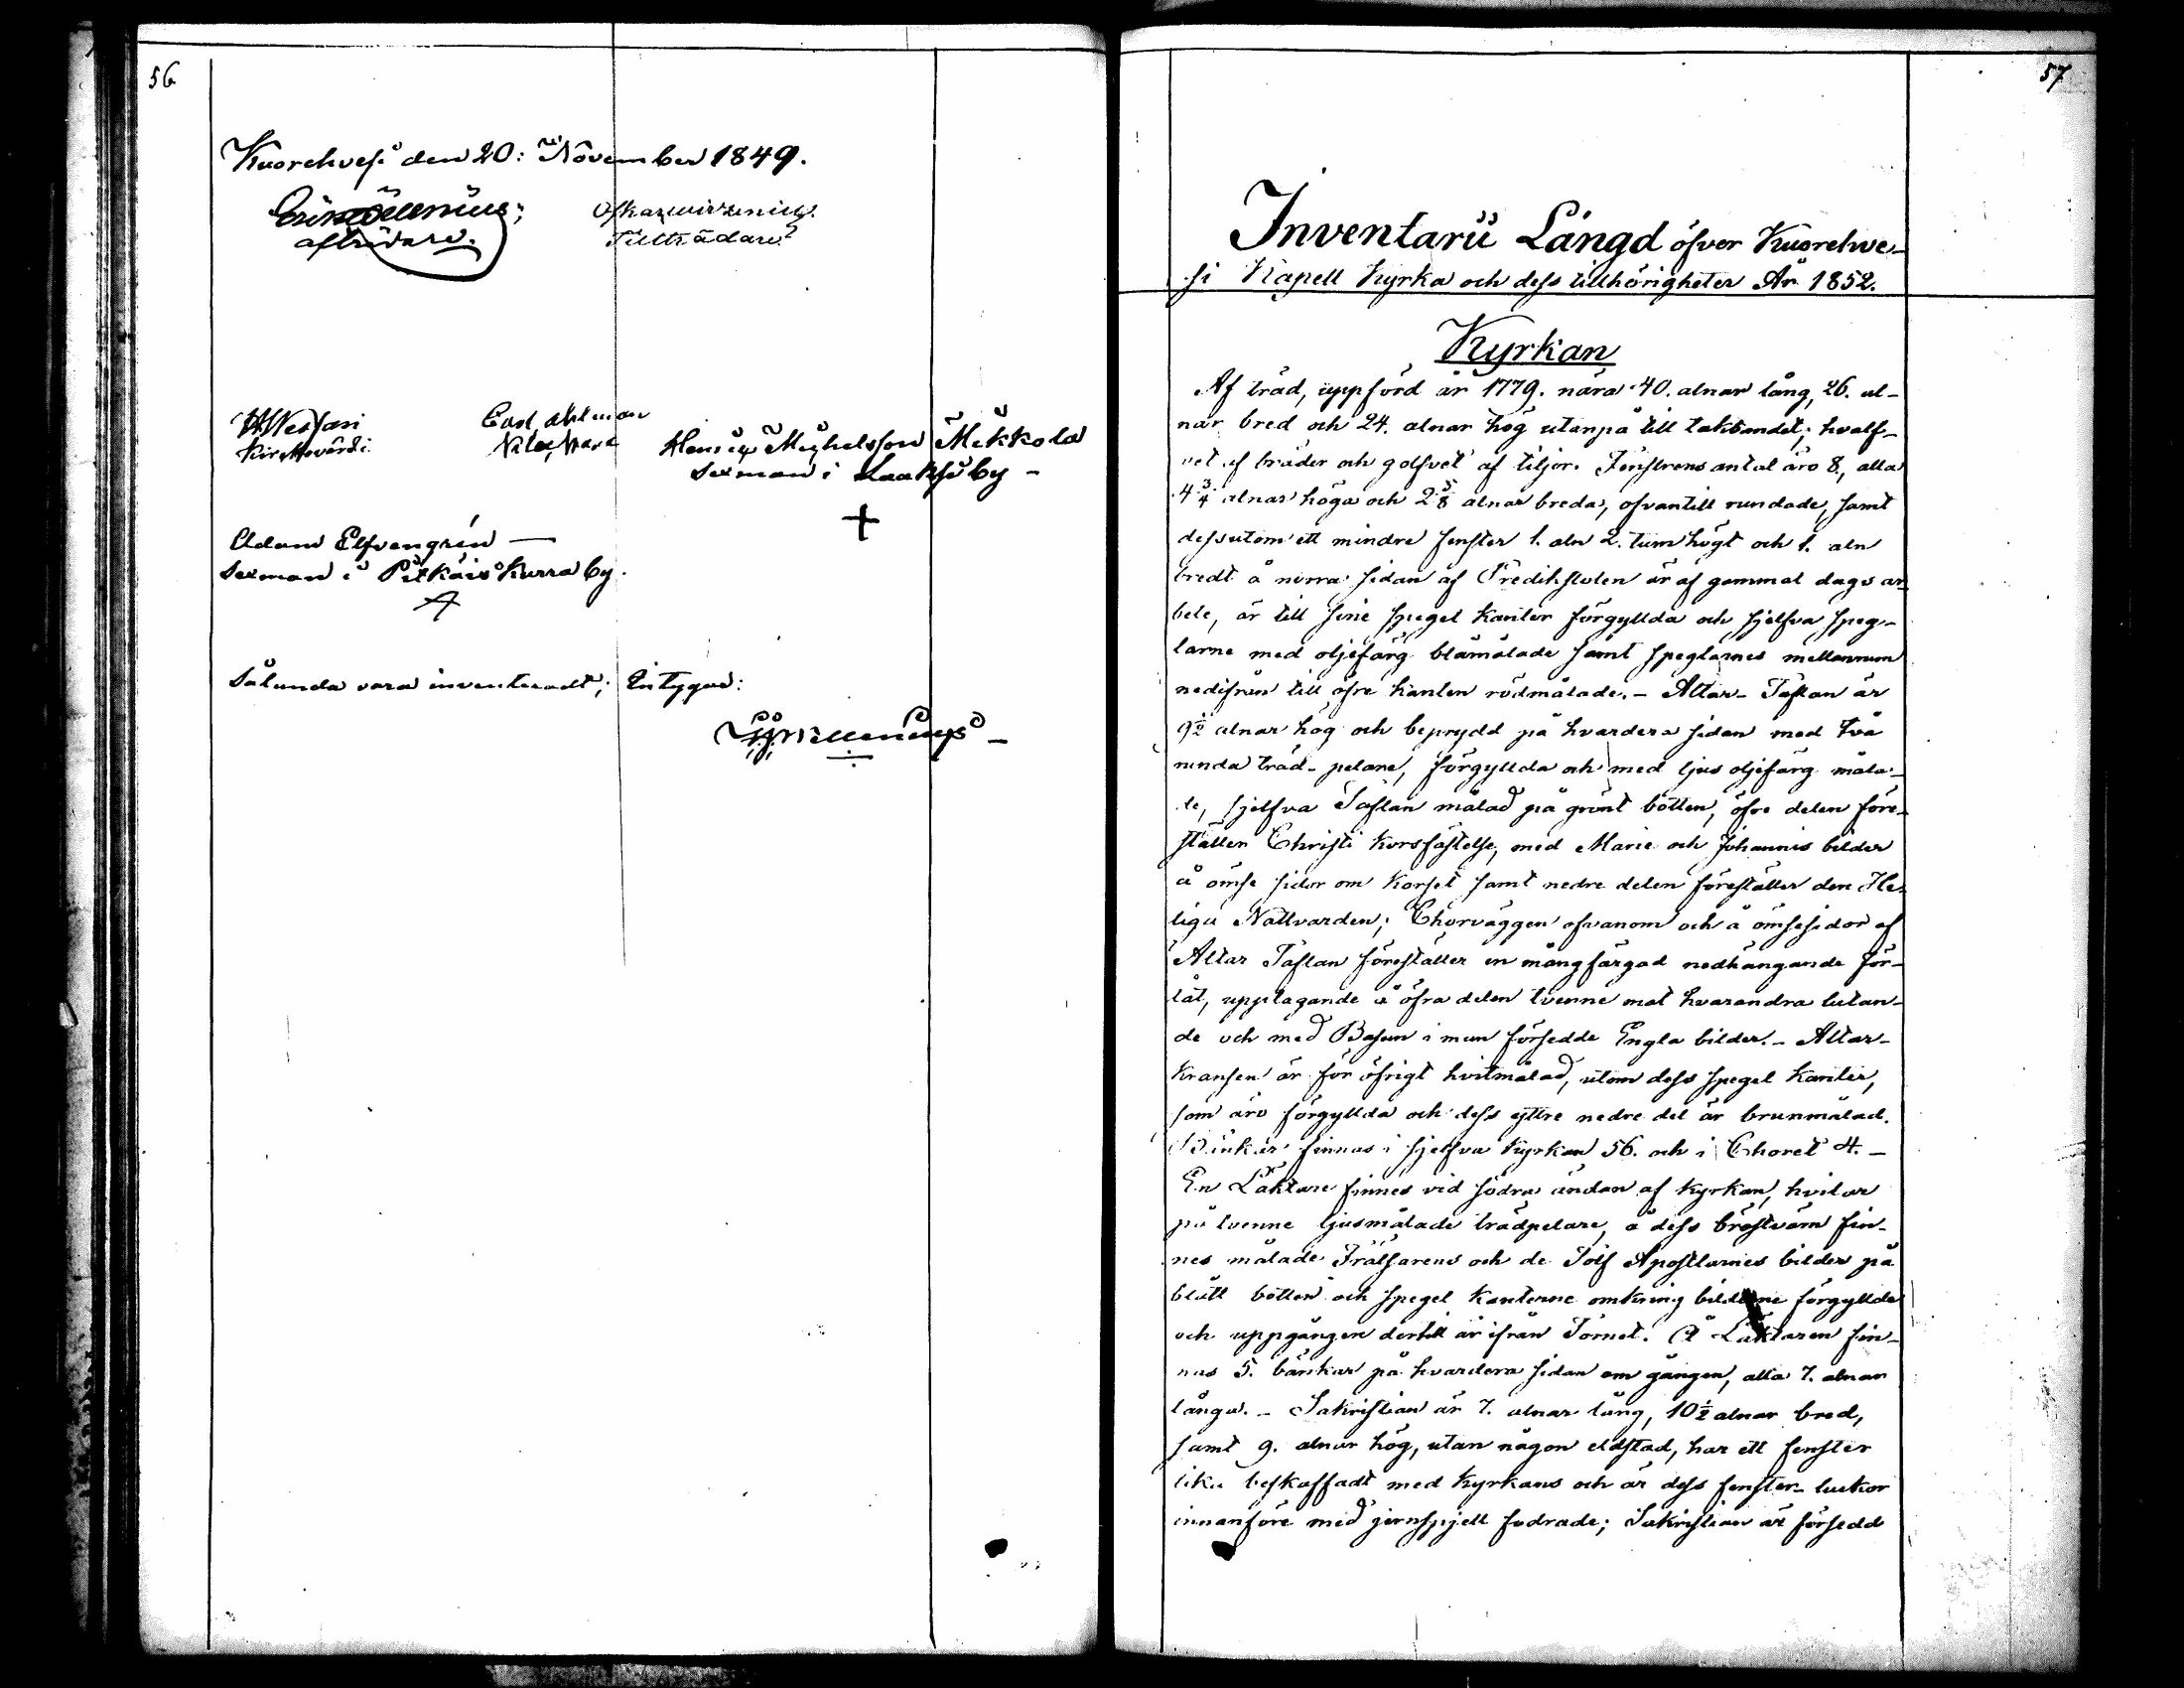 56.
Kuorehvesi den 20: November 1849.
Eric Wellenius; Oskar Wirzenius.
afträdare. Tillträdare
Carl Ahlman
Henric Michelsson Mekkola
Sexman i Laaksi by -
+
Adam Elfvengrén —
Sexman i Pitkäis Kurra by.
Sålunda vara inventeradt; Intygar:
57
Inventarii Längd öfver Kuorehve-
si Kapell Kyrka och dess tillhörigheter År 1852.
Kyrkan
Af träd, uppförd år 1779. nära 40. alnar lång, 26. al-
nar bred och 24. alnar hög utanpå till takbandet; hvalf-
vet af bräder och golfvet af tiljor. Fenstrens antal äro 8., alla
4 3/4 alnar höga och 2 5/8 alnar breda, ofvantill rundade, samt
dessutom ett mindre fenster 1. aln 2. tum högt och 1. aln
bredt å norra sidan af Predikstolen är af gammal dags ar-
bete, är till sine spegel kanter förgyllda och sjelfva speg-
larne med oljefärg blåmålade samt speglarnes mellanrum
nedifrån till öfre kanten rödmålade. - Altar-Taflan är
9 1/2 alnar hög och beprydd på hvardera sidan med två
runda träd-pelare, förgyllda och med ljus oljefärg måla-
de, sjelfva Taflan målad på grönt botten, öfre delen före-
ställer Christi korsfästelse, med Marie och Johannis bilder
å ömse sidor om Korset samt nedre delen föreställer den He-
liga Nattvarden; Chorväggen ofvanom och å ömse sidor af
Altar Taflan föreställer en mångfärgad nedhängande för-
låt, upptagande å öfra delen tvenne mot hvarandra lutan-
de och med Basun i mun försedde Engla bilder. - Altar-
Kransen är för öfrigt hvitmålad, utom dess spegel kanter,
som äro förgyllda och dess yttre nedre del är brunmålad.
Bänkar finnas i sjelfva Kyrkan 56. och i Choret 4. -
En Läktare finnes vid södra ändan af kyrkan, hvilar
på tvenne ljusmålade trädpelare, å dess bröstvärn fin-
nes målade Frälsarens och de Tolf Apostlarnes bilder på
blått botten och spegel kanterne omkring bilderne förgyllde
och uppgången dertill är ifrån Tornet. På Läktaren fin-
nas 5. bänkar på hvardera sidan om gången, alla 7. alnar
långa. - Sakristian är 7. alnar lång, 10 1/2 alnar bred,
samt 9. alnar hög, utan någon eldstad, har ett fenster
lika beskaffadt med Kyrkans och är dess fenster-luckor
innanföre med jernspjell fodrade; Sakristian är försedd